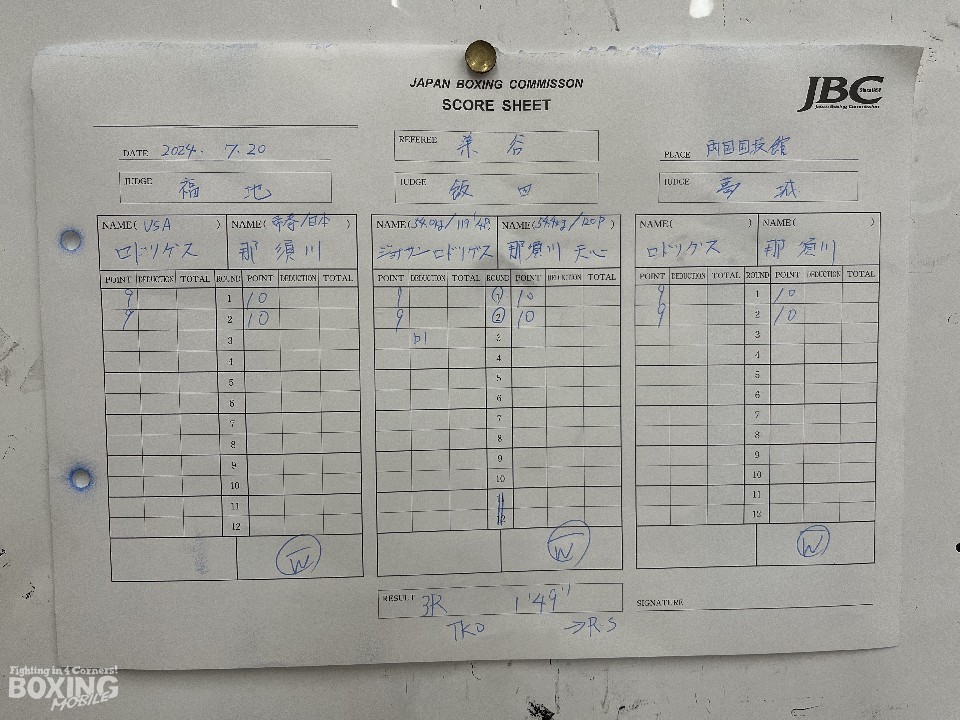 JAPAN BOXING COMMISSON
SCORE SHEET
JBC
Since1952
Japan Boxing Commission
DATE 2024. 7.20
REFEREE 染谷
PLACE 両国国技館
JUDGE 福地
JUDGE 飯田
JUDGE 葛城
NAME( USA ) NAME( 帝拳/日本 )
ロドリゲス 那須川
NAME(54.0kg/119 NAME(54.4kg/120P )
ジョナサン ロドリゲス 那須川 天心
NAME( ) NAME( )
ロドリゲス 那須川
POINT DEDUCTION TOTAL ROUND POINT DEDUCTION TOTAL
9 1 10
9 2 10
3
4
5
6
7
8
9
10
11
12
W
POINT DEDUCTION TOTAL ROUND POINT DEDUCTION TOTAL
9 1 10
9 2 10
D1 3
4
5
6
7
8
9
10
11
12
W
POINT DEDUCTION TOTAL ROUND POINT DEDUCTION TOTAL
9 1 10
9 2 10
3
4
5
6
7
8
9
10
11
12
W
RESULT 3R 1'49"
TKO →R.S
SIGNATURE
Fighting in 4 Corners!
BOXING
MOBILE